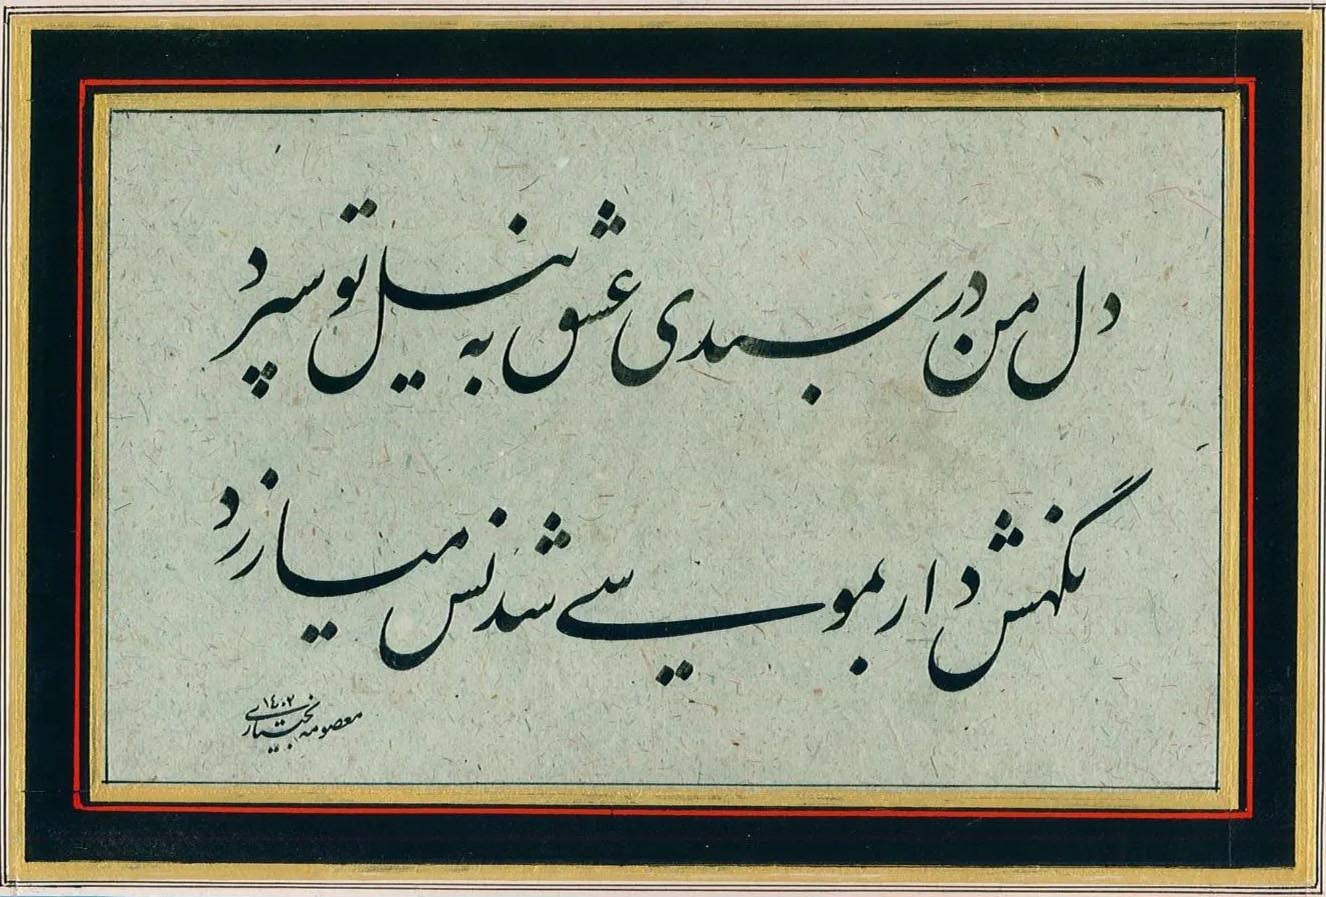 دل من در سبدی عشق به نیل تو سپرد
نگهش دار به موسی شدنش می‌ارزد
معصومه بختیاری
۱۴۰۲